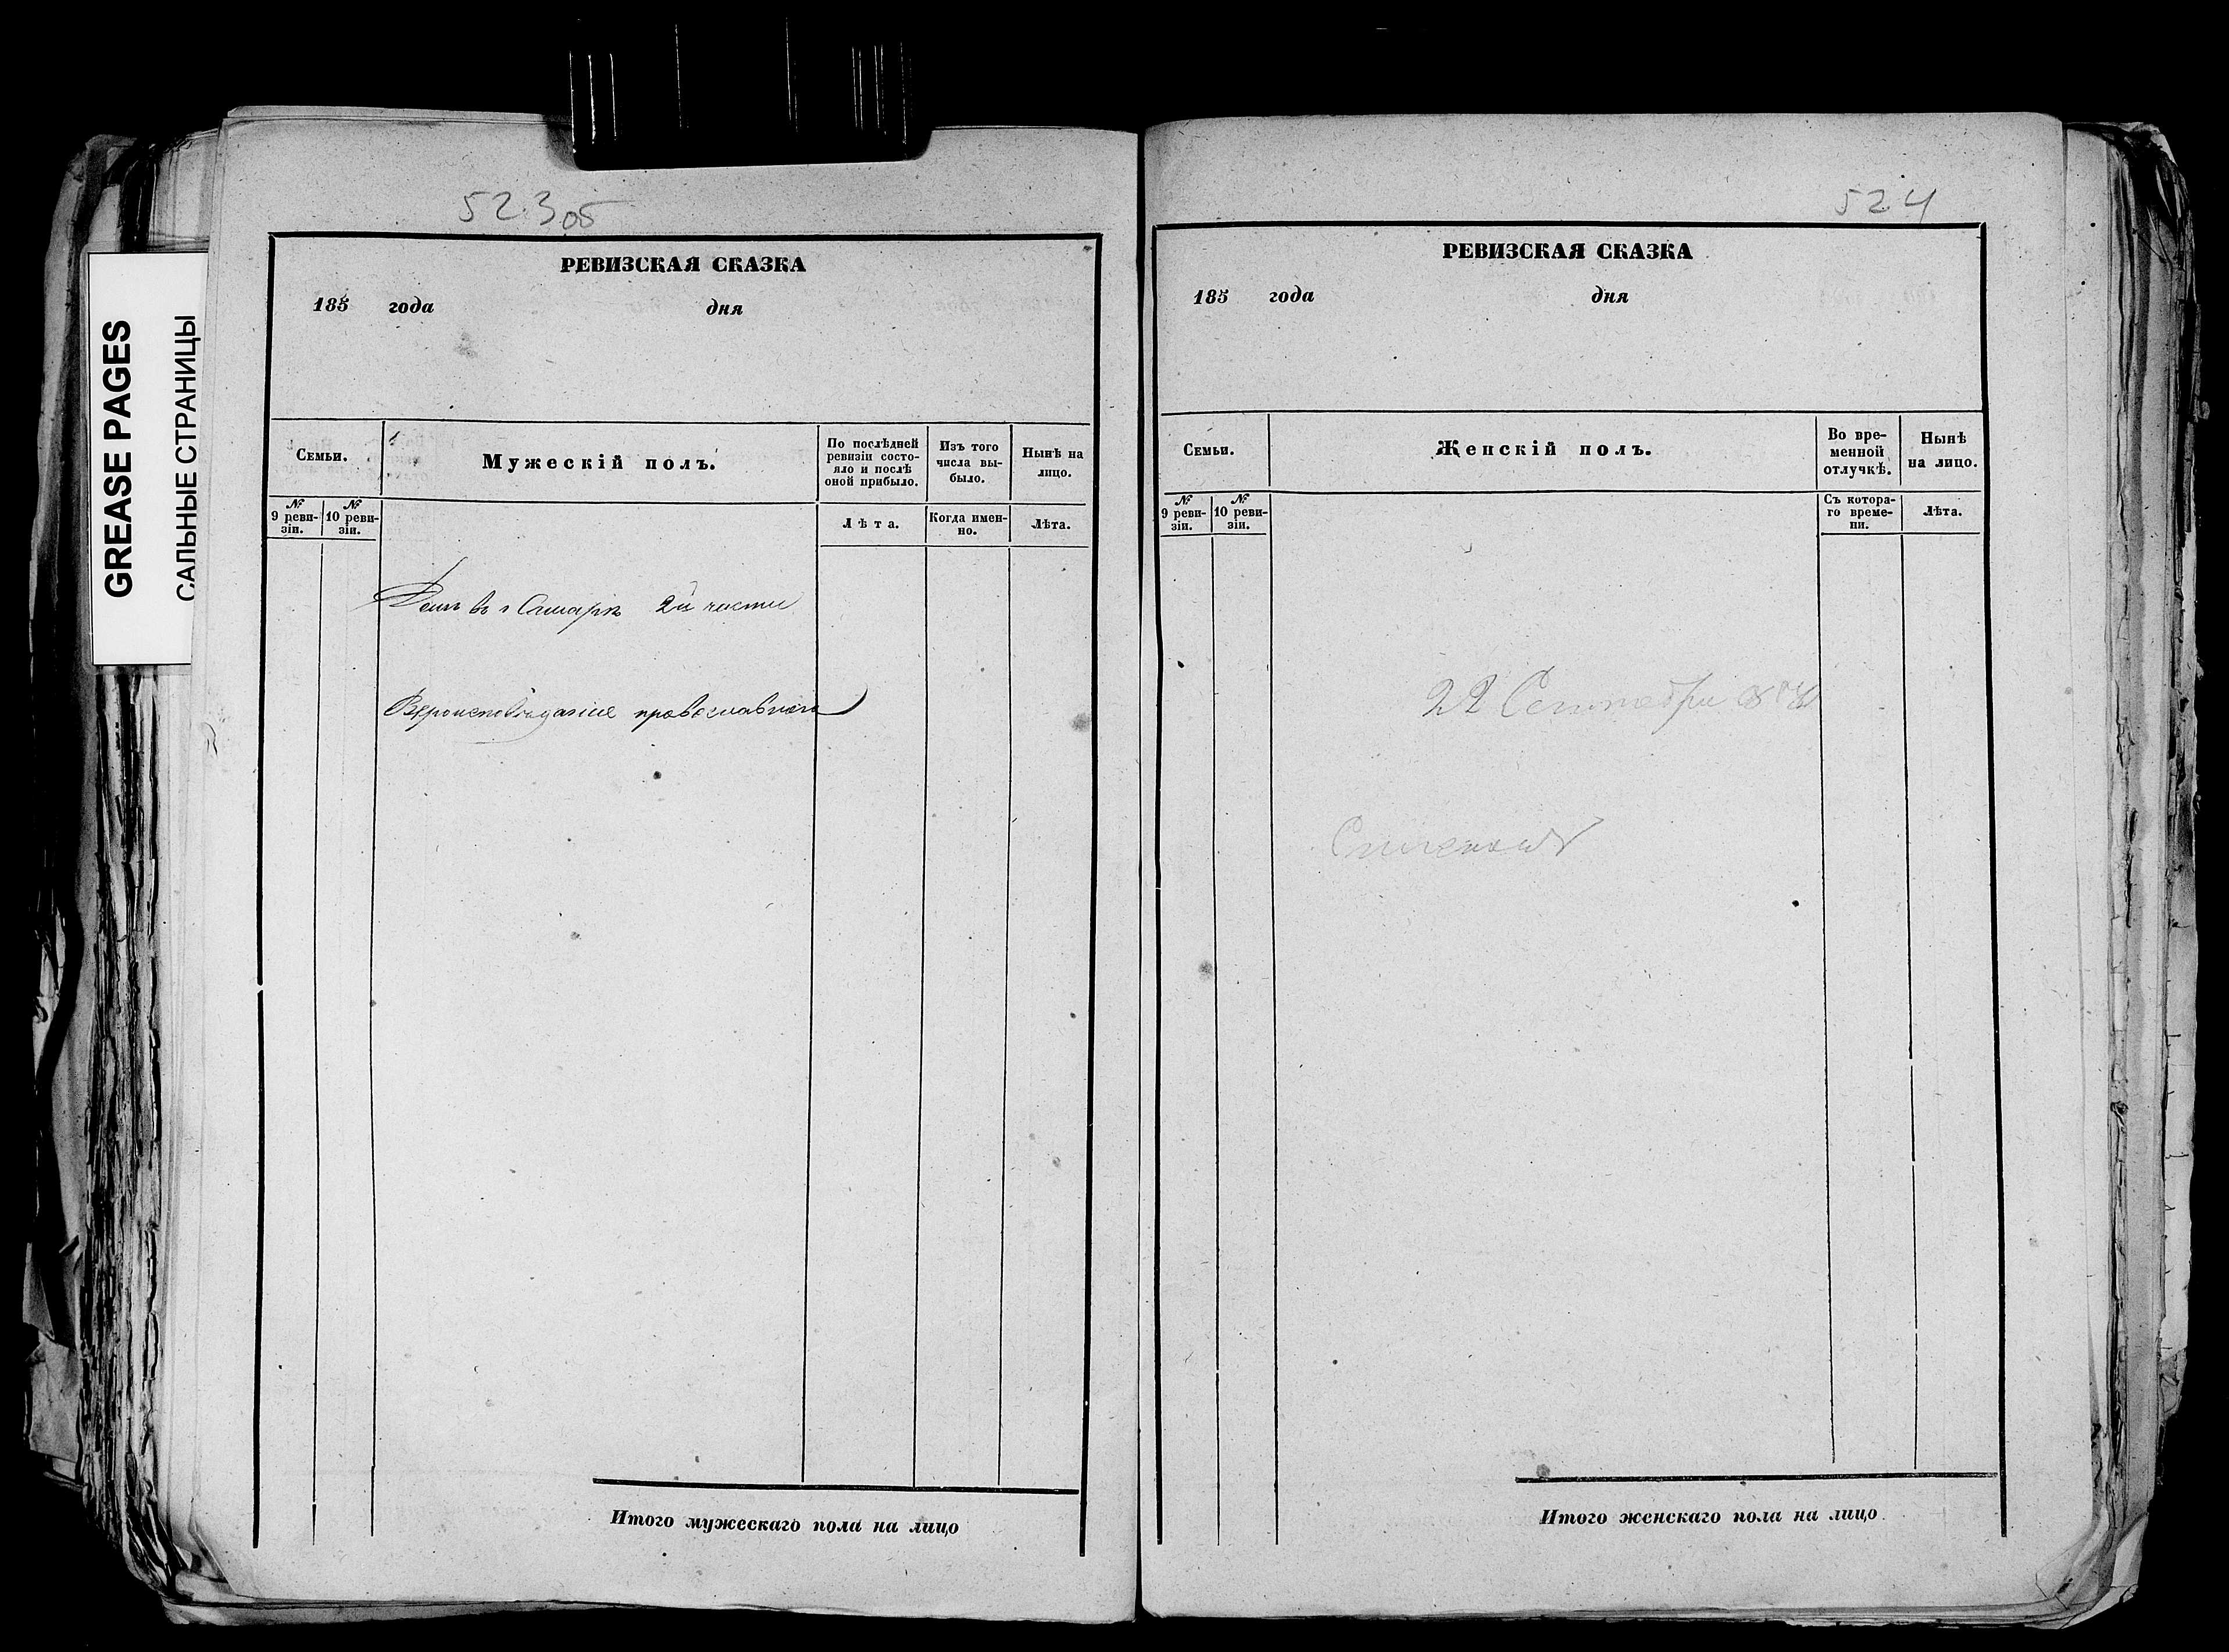 GREASE PAGES
САЛЬНЫЕ СТРАНИЦЫ
523об
РЕВИЗСКАЯ СКАЗКА
185 года дня
Семьи.
Мужескій полъ.
По послѣдней
ревизіи состо-
яло и послѣ
оной прибыло.
Изъ того
числа вы-
было.
Нынѣ на
лицо.
№
9 реви-
зіи.
№
10 реви-
зіи.
Лѣта.
Когда имен-
но.
Лѣта.
Домъ въ г Самарѣ 2й части
Вѣроисповѣданіе православнаго
Итого мужескаго пола на лицо
524
РЕВИЗСКАЯ СКАЗКА
185 года дня
Семьи.
Женскій полъ.
Во вре-
менной
отлучкѣ.
Нынѣ
на лицо.
№
9 реви-
зіи.
№
10 реви-
зіи.
Съ котора-
го време-
ни.
Лѣта.
22 Сентября
Итого женскаго пола на лицо